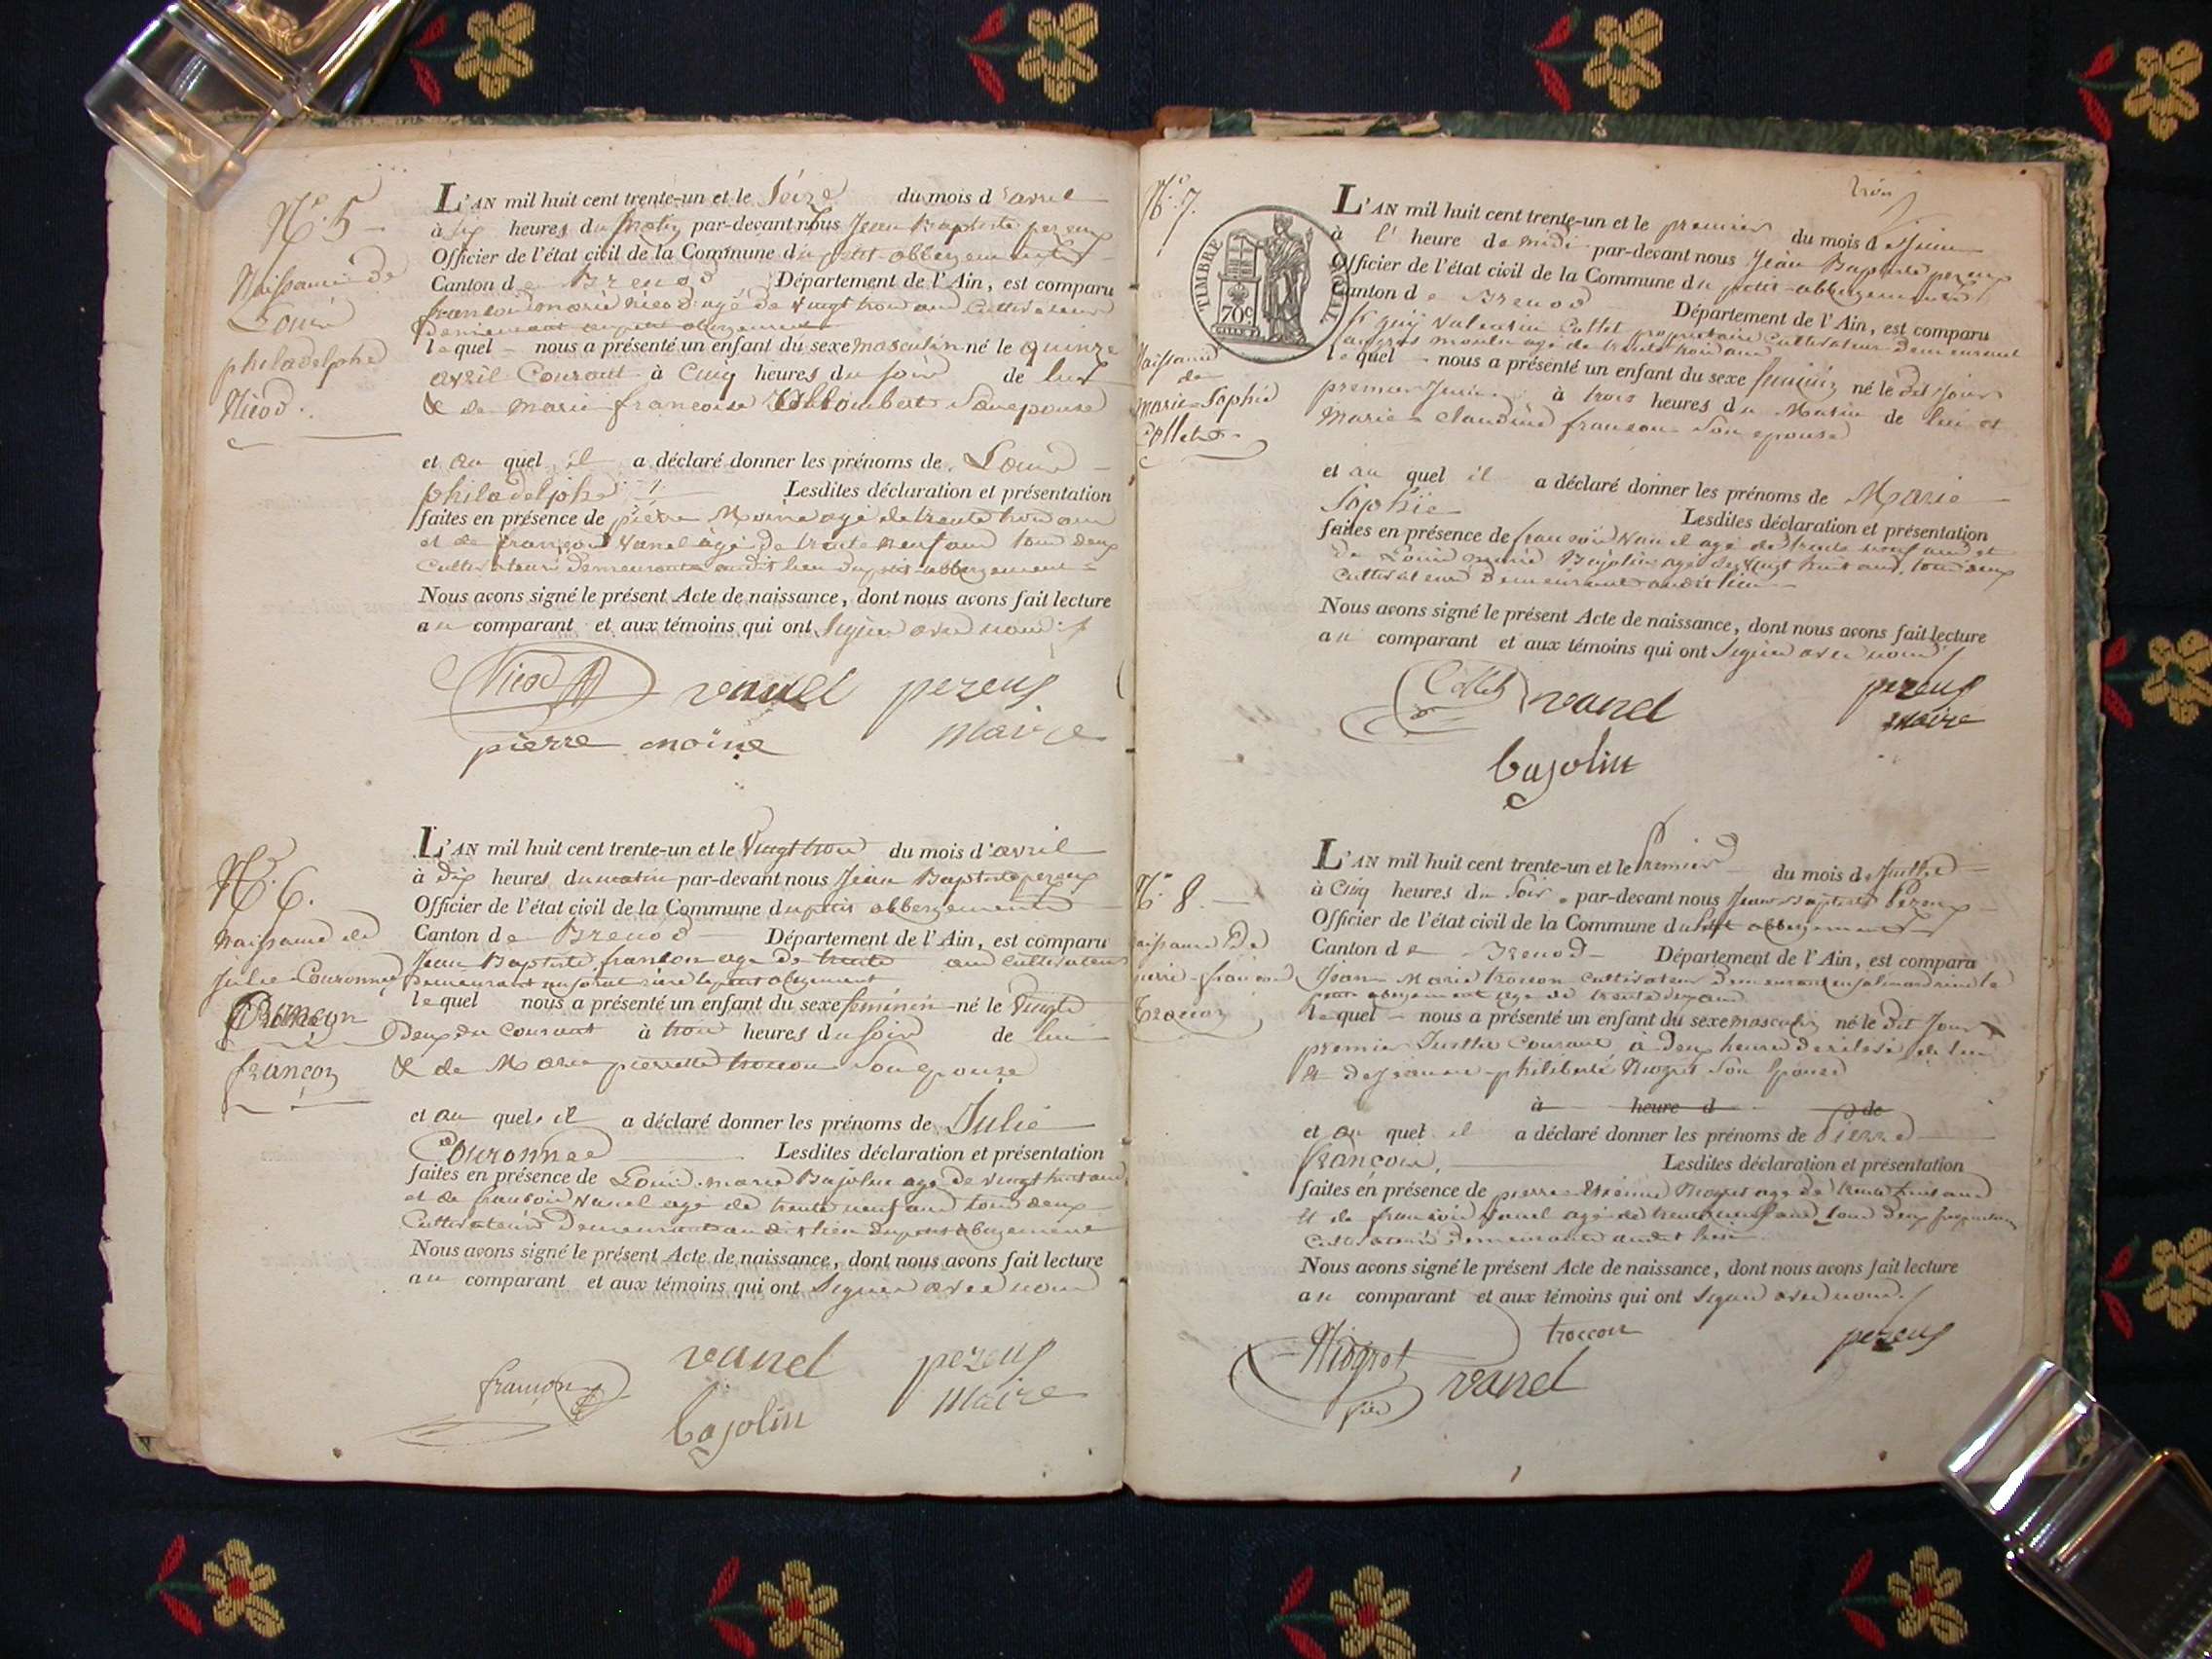 N.° 5
Naissance de
Louis
philadelphe
Nicod.
L'AN mil huit cent trente-un et le Seize du mois d'avril
à dix heures du matin par-devant nous Jean Baptiste pereux
Officier de l'état civil de la Commune du petit abbergement
Canton de Brenod Département de l'Ain, est comparu
françois marie Nicod agé de vingt trois ans Cultivateur
Demeurant au petit abergement
lequel nous a présenté un enfant du sexe masculin né le quinze
avril Courant à Cinq heures du soir de lui
& de marie françoise Son epouse
et au quel il a déclaré donner les prénoms de Louis
philadelphe Lesdites déclaration et présentation
faites en présence de pierre Moine agé de trente trois ans
et de françois Vanel agé de trente neuf ans tous deux
Cultivateurs Demeurants audit lieu du petit abbergement
Nous avons signé le présent Acte de naissance, dont nous avons fait lecture
au comparant et aux témoins qui ont Signés avec nous
Nicod vanel pereux
pierre moine maire
N.° 6.
Naissance de
Julie Couronnée
françon
L'AN mil huit cent trente-un et le Vingt trois du mois d'avril
à dix heures du matin par-devant nous Jean Baptiste pereux
Officier de l'état civil de la Commune du petit abbergement
Canton de Brenod Département de l'Ain, est comparu
Jean Baptiste françon agé de trente ans Cultivateur
Demeurant petit abergement
lequel nous a présenté un enfant du sexe féminin né le Vingt
Deux du Courant à trois heures du soir de lui
& de Marie pierrette troccon Son epouse
et au quel il a déclaré donner les prénoms de Julie
Couronnée Lesdites déclaration et présentation
faites en présence de Louis marie Bajolin agé de vingt huit ans
et de françois Vanel agé de trente neuf ans tous deux
Cultivateurs Demeurant audit lieu du petit abergement
Nous avons signé le présent Acte de naissance, dont nous avons fait lecture
au comparant et aux témoins qui ont Signés avec nous
françon vanel pereux
bajolin maire
trois
N.° 7.
TIMBRE ROYAL
70c
Naissance
de
Marie Sophie
Collet
L'AN mil huit cent trente-un et le premier du mois de Juin
à l' heure de midi par-devant nous Jean Baptiste pereux
Officier de l'état civil de la Commune du petit abbergement
Canton de Brenod Département de l'Ain, est comparu
Sr guy Valentin Collet propriétaire Cultivateur Demeurant
au gros moulin agé de trente trois ans
lequel nous a présenté un enfant du sexe féminin né le Dit Jour
premier Juin à trois heures du Matin de lui et
Marie Claudine françon Son epouse
et au quel il a déclaré donner les prénoms de Marie
Sophie Lesdites déclaration et présentation
faites en présence de françois Vanel agé de trente neuf ans et
de Louis marie Bajolin agé de Vingt huit ans, tous deux
Cultivateurs Demeurant audit lieu
Nous avons signé le présent Acte de naissance, dont nous avons fait lecture
au comparant et aux témoins qui ont Signés avec nous
Collet vanel pereux
maire
bajolin
N.° 8.
Naissance De
pierre françois
Troccon
L'AN mil huit cent trente-un et le Premier du mois de Juillet
à Cinq heures du Soir par-devant nous Jean Baptiste Pereux
Officier de l'état civil de la Commune du Petit abbergement
Canton de Brenod Département de l'Ain, est comparu
Jean Marie troccon Cultivateur Demeurant
petit abergement agé de trente
lequel nous a présenté un enfant du sexe masculin né le Dit Jour
premier Juillet Courant, à Deux heures de lui
& De Jeanne philiberte Niogret Son Epouse
à heure d de
et au quel il a déclaré donner les prénoms de Pierre
françois. Lesdites déclaration et présentation
faites en présence de pierre Niogret agé de trente huit ans
et de françois Vanel agé de trente neuf ans tous deux
Cultivateurs Demeurants audit lieu.
Nous avons signé le présent Acte de naissance, dont nous avons fait lecture
au comparant et aux témoins qui ont Signés avec nous
Niogret troccon pereux
vanel